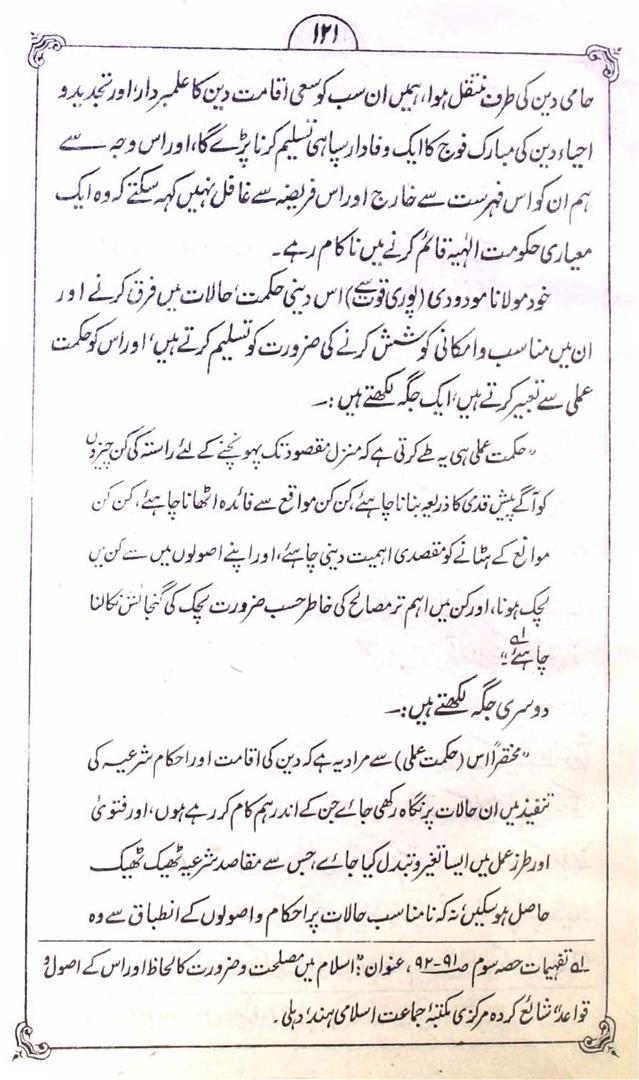 ۱۲۱
حامی دین کی طرف منتقل ہوا، ہمیں ان سب کو سعی اقامت دین کا علمبردار، اور تجدید و
احیاء دین کی مبارک فوج کا ایک وفادار سپاہی تسلیم کرنا پڑے گا، اور اس وجہ سے
ہم ان کو اس فہرست سے خارج اور اس فریضہ سے غافل نہیں کہہ سکتے کہ وہ ایک
معیاری حکومت الٰہیہ قائم کرنے میں ناکام رہے۔
خود مولانا مودودی (پوری قوت سے) اس دینی حکمت، حالات میں فرق کرنے اور
ان میں مناسب و امکانی کوشش کرنے کی ضرورت کو تسلیم کرتے ہیں، اور اس کو حکمت
عملی سے تعبیر کرتے ہیں، ایک جگہ لکھتے ہیں:۔
"حکمت عملی ہی یہ طے کرتی ہے کہ منزل مقصود تک پہونچنے کے لئے راستہ کی کن چیزوں
کو آگے پیش قدمی کا ذریعہ بنانا چاہئے، کن کن مواقع سے فائدہ اٹھانا چاہئے، کن کن
موانع کے ہٹانے کو مقصدی اہمیت دینی چاہئے، اور اپنے اصولوں میں سے کن میں
لچک ہونا، اور کن میں اہم تر مصالح کی خاطر حسب ضرورت لچک کی گنجائش نکالنا
چاہئے" ؎۱
دوسری جگہ لکھتے ہیں:۔
"مختصراً اس (حکمت عملی) سے مراد یہ ہے کہ دین کی اقامت اور احکام شرعیہ کی
تنفیذ میں ان حالات پر نگاہ رکھی جائے جن کے اندر ہم کام کر رہے ہوں، اور فتویٰ
اور طرز عمل میں ایسا تغیر و تبدل کیا جائے، جس سے مقاصد شرعیہ ٹھیک ٹھیک
حاصل ہو سکیں، نہ کہ نامناسب حالات پر احکام و اصولوں کے انطباق سے وہ
؎۱ تفہیمات حصہ سوم ص ۹۱-۹۲، عنوان: "اسلام میں مصلحت و ضرورت کا لحاظ اور اس کے اصول و
قواعد" شائع کردہ مرکزی مکتبۂ جماعت اسلامی ہند، دہلی۔